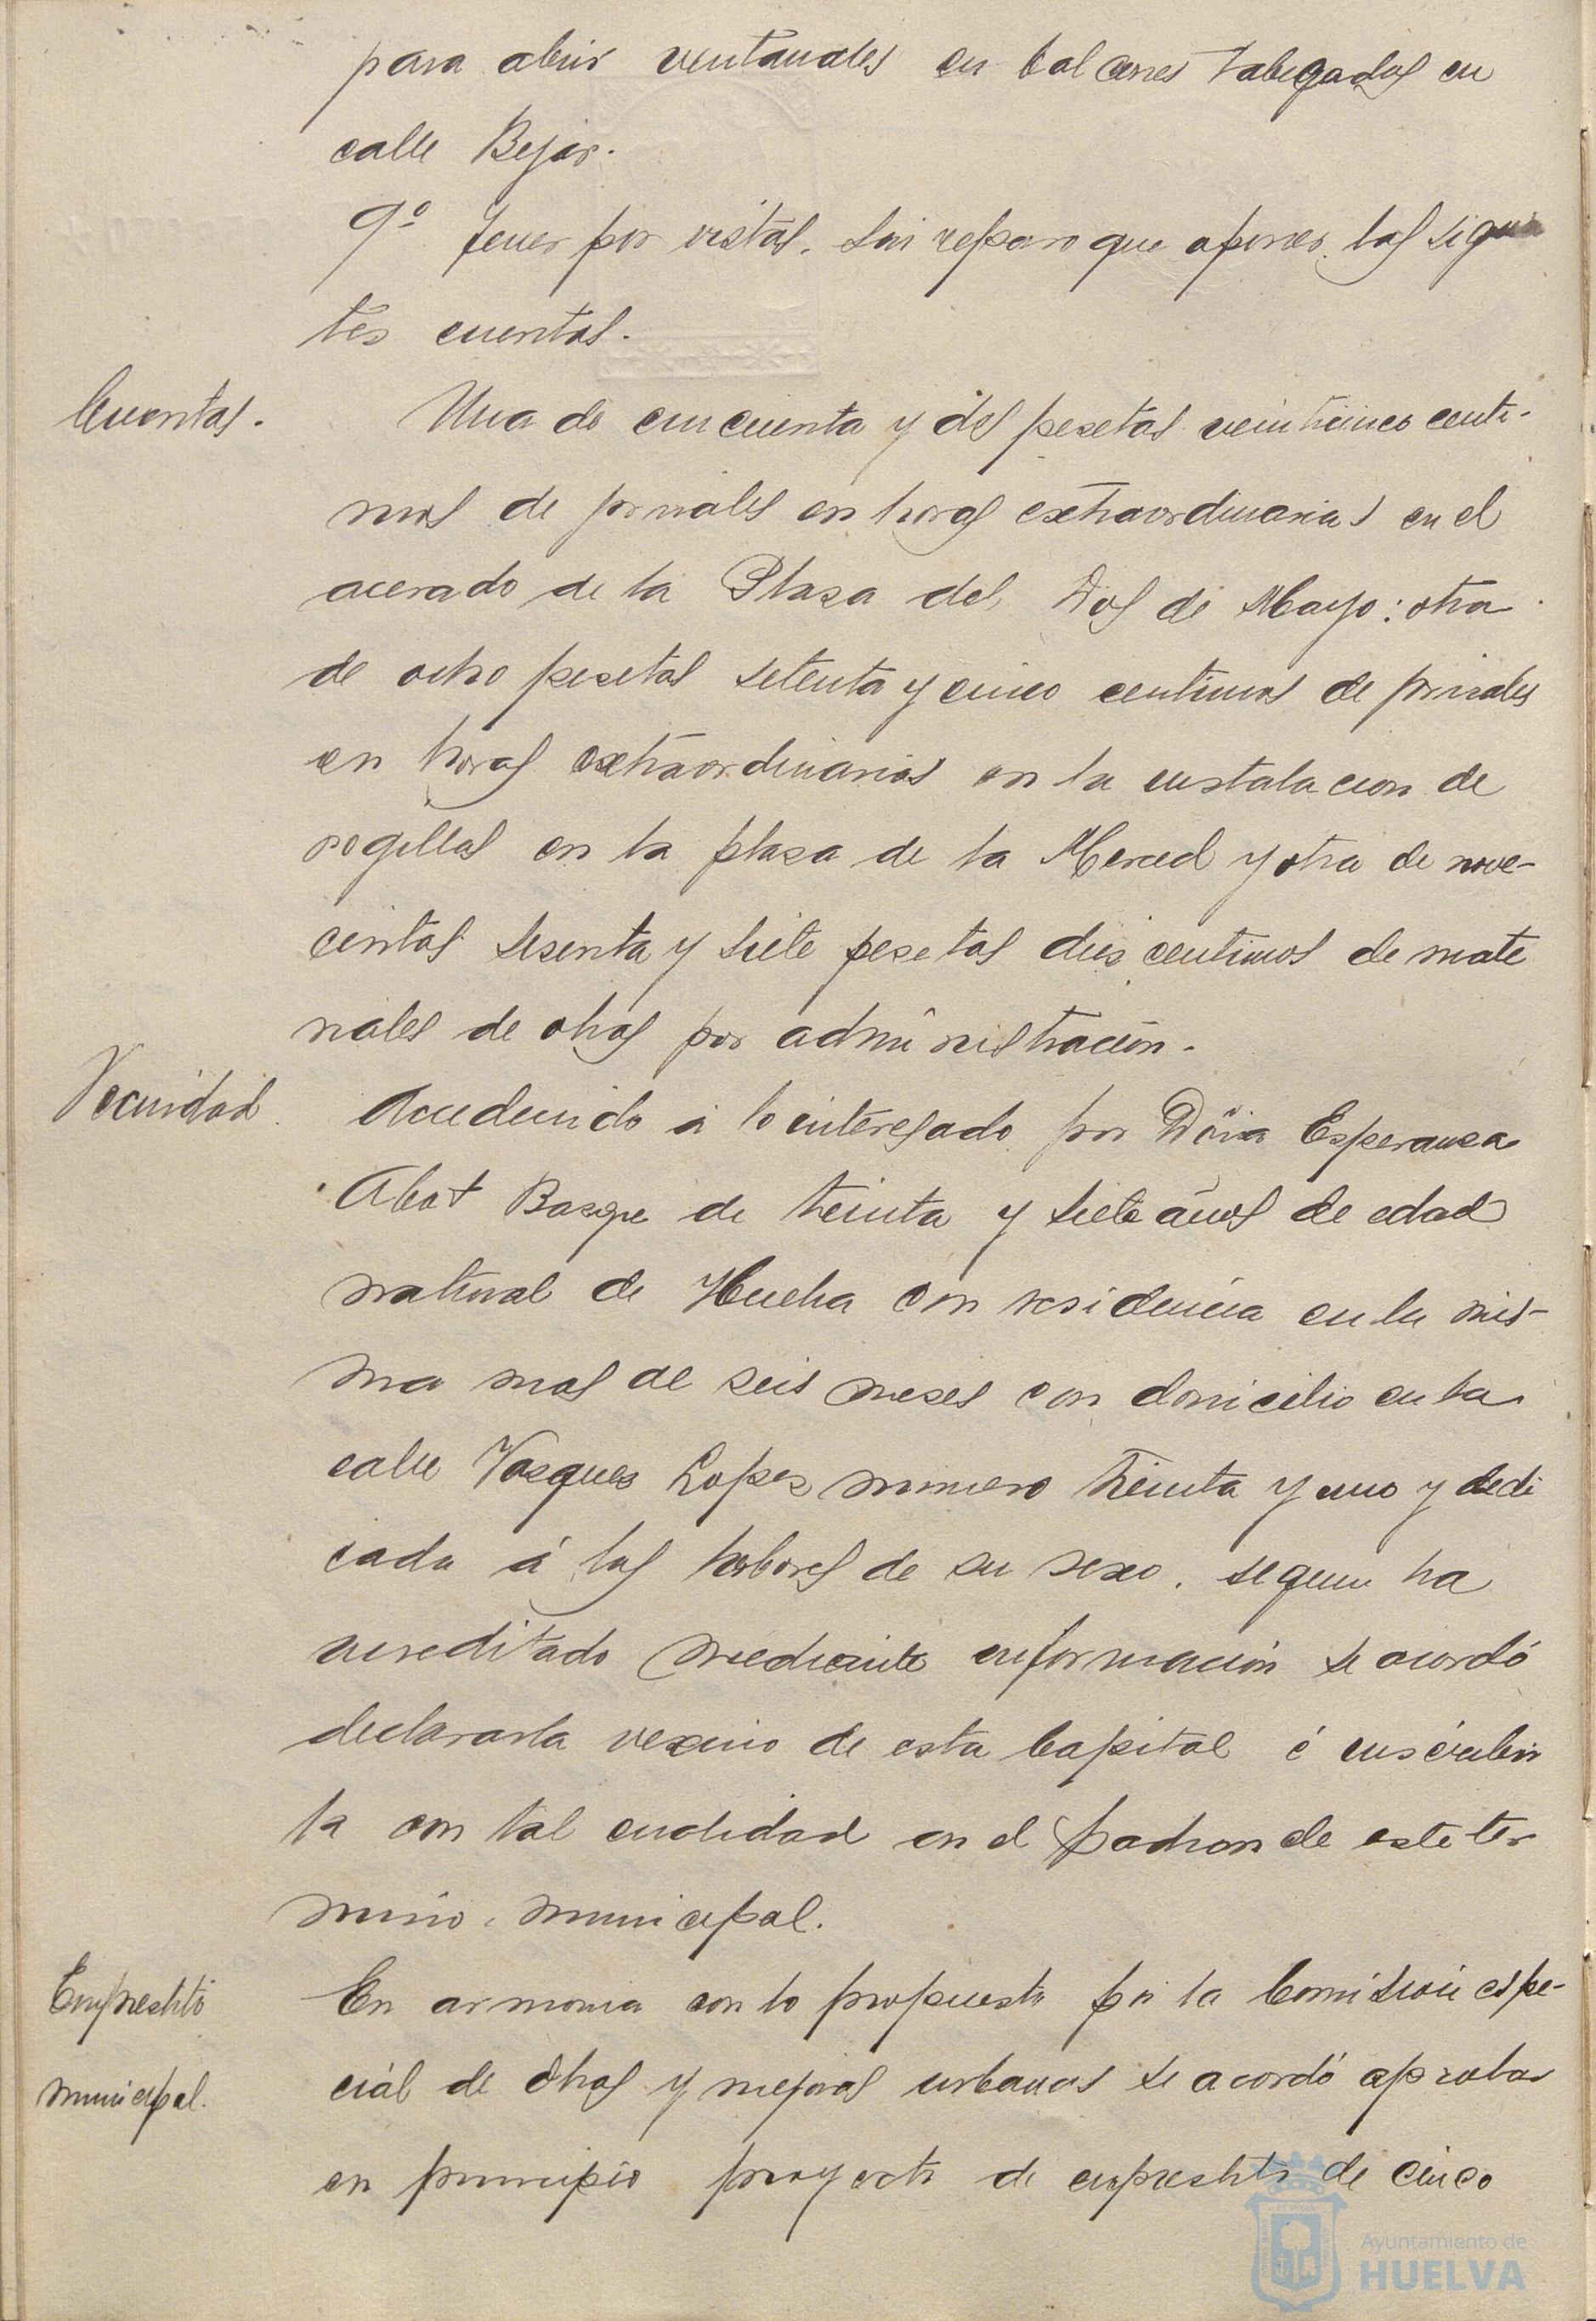 para abrir ventanales en balcones tabicados en
calle Bejar.
9º Tener por vistas, sin reparo que oponer, las siguien
tes cuentas.
Cuentas.
Una de cincuenta y dos pesetas veinticinco centi-
mos de jornales en horas extraordinarias en el
acerado de la Plaza del Dos de Mayo: otra
de ocho pesetas setenta y cinco centimos de jornales
en horas extraordinarias en la instalacion de
rogillas en la plaza de la Merced y otra de nove-
cientas sesenta y siete pesetas dies centimos de mate
riales de obras por administración.
Vecindad.
Accediendo á lo interesado por Doña Esperanza
Abat Bazque de treinta y siete años de edad
natural de Huelva con residencia en la mis-
ma mas de seis meses con domicilio en la
calle Vazquez Lopez numero treinta y uno y dedi
cada á las labores de su sexo, segun ha
acreditado mediante información se acordó
declararla vecino de esta Capital é inscribir
la con tal cualidad en el padron de este ter
mino municipal.
Emprestito
municipal.
En armonia con lo propuesto por la Comisión espe-
cial de Obras y mejoras urbanas se acordó aprobar
en principio proyecto de emprestito de cinco
Ayuntamiento de
HUELVA